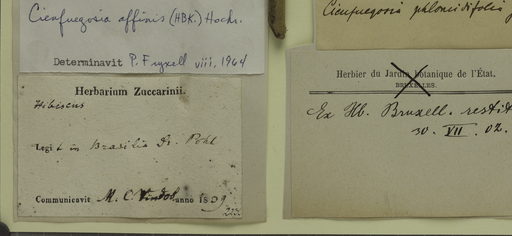 Cienfuegosia affinis (HBK.) Hochr.
Determinavit P. Fryxell viii, 1964
Herbarium Zuccarinii.
Hibiscus
Legit in Brasilia Dr. Pohl
Communicavit M. C. Vindob anno 1839
Cienfuegosia phlomidifolia
Herbier du Jardin botanique de l'État.
BRUXELLES.
Ex Hb. Bruxell. restit
30. VII. 02.